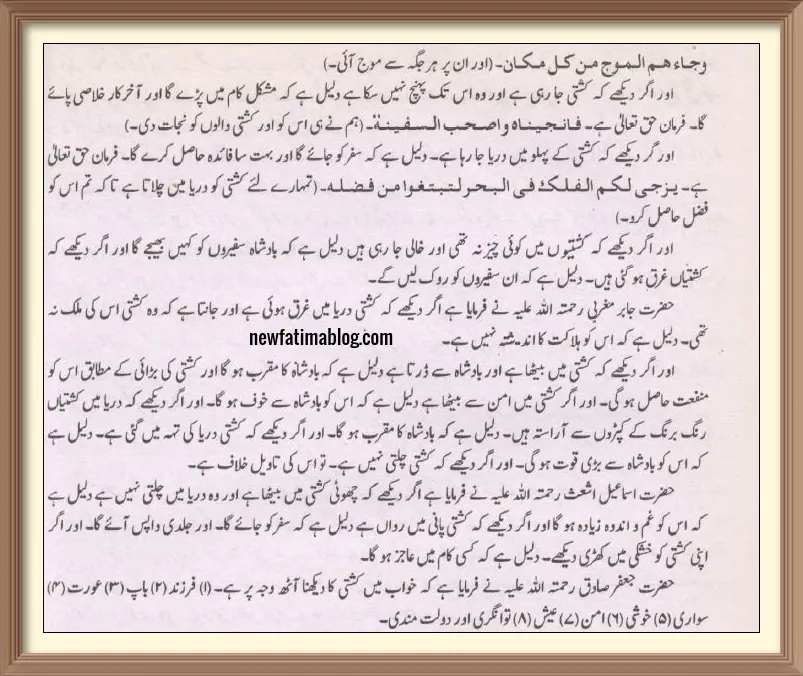 وجاء هم الموج من كل مكان۔ (اور ان پر ہر جگہ سے موج آئی۔)
اور اگر دیکھے کہ کشتی جا رہی ہے اور وہ اس تک پہنچ نہیں سکا ہے دلیل ہے کہ مشکل کام میں پڑے گا اور آخر کار خلاصی پائے
گا۔ فرمان حق تعالیٰ ہے۔ فانجیناہ و اصحب السفینۃ۔ (ہم نے ہی اس کو اور کشتی والوں کو نجات دی۔)
اور گر دیکھے کہ کشتی کے پہلو میں دریا جا رہا ہے۔ دلیل ہے کہ سفر کو جائے گا اور بہت سا فائدہ حاصل کرے گا۔ فرمان حق تعالیٰ
ہے۔ یزجی لکم الفلک فی البحر لتبتغوا من فضلہ۔ (تمہارے لئے کشتی کو دریا میں چلاتا ہے تاکہ تم اس کو
فضل حاصل کرو۔)
اور اگر دیکھے کہ کشتیوں میں کوئی چیز نہ تھی اور خالی جا رہی ہیں دلیل ہے کہ بادشاہ سفیروں کو کہیں بھیجے گا اور اگر دیکھے کہ
کشتیاں غرق ہو گئی ہیں۔ دلیل ہے کہ ان سفیروں کو روک لیں گے۔
حضرت جابر مغربی رحمتہ اللہ علیہ نے فرمایا ہے اگر دیکھے کہ کشتی دریا میں غرق ہوئی ہے اور جانتا ہے کہ وہ کشتی اس کی ملک نہ
تھی۔ دلیل ہے کہ اس کو ہلاکت کا اندیشہ نہیں ہے۔
newfatimablog.com
اور اگر دیکھے کہ کشتی میں بیٹھا ہے اور بادشاہ سے ڈرتا ہے دلیل ہے کہ بادشاہ کا مقرب ہو گا اور کشتی کی بڑائی کے مطابق اس کو
منفعت حاصل ہو گی۔ اور اگر کشتی میں امن سے بیٹھا ہے دلیل ہے کہ اس کو بادشاہ سے خوف ہو گا۔ اور اگر دیکھے کہ دریا میں کشتیاں
رنگ برنگ کے کپڑوں سے آراستہ ہیں۔ دلیل ہے کہ بادشاہ کا مقرب ہو گا۔ اور اگر دیکھے کہ کشتی دریا کی تہہ میں گئی ہے۔ دلیل ہے
کہ اس کو بادشاہ سے بڑی قوت ہو گی۔ اور اگر دیکھے کہ کشتی چلتی نہیں ہے۔ تو اس کی تاویل خلاف ہے۔
حضرت اسماعیل اشعث رحمتہ اللہ علیہ نے فرمایا ہے اگر دیکھے کہ چھوٹی کشتی میں بیٹھا ہے اور وہ دریا میں چلتی نہیں ہے دلیل ہے
کہ اس کو غم و اندوہ زیادہ ہو گا اور اگر دیکھے کہ کشتی پانی میں رواں ہے دلیل ہے کہ سفر کو جائے گا۔ اور جلدی واپس آئے گا۔ اور اگر
اپنی کشتی کو خشکی میں کھڑی دیکھے۔ دلیل ہے کہ کسی کام میں عاجز ہو گا۔
حضرت جعفر صادق رحمتہ اللہ علیہ نے فرمایا ہے کہ خواب میں کشتی کا دیکھنا آٹھ وجہ پر ہے۔ (۱) فرزند (۲) باپ (۳) عورت (۴)
سواری (۵) خوشی (۶) امن (۷) عیش (۸) توانگری اور دولت مندی۔